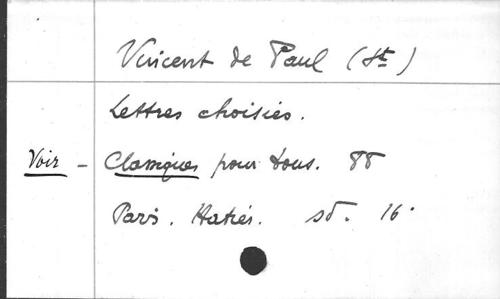 Vincent de Paul (St)
Lettres choisies.
Voir - Classiques pour tous. 88
Paris. Hatier. sd. 16°